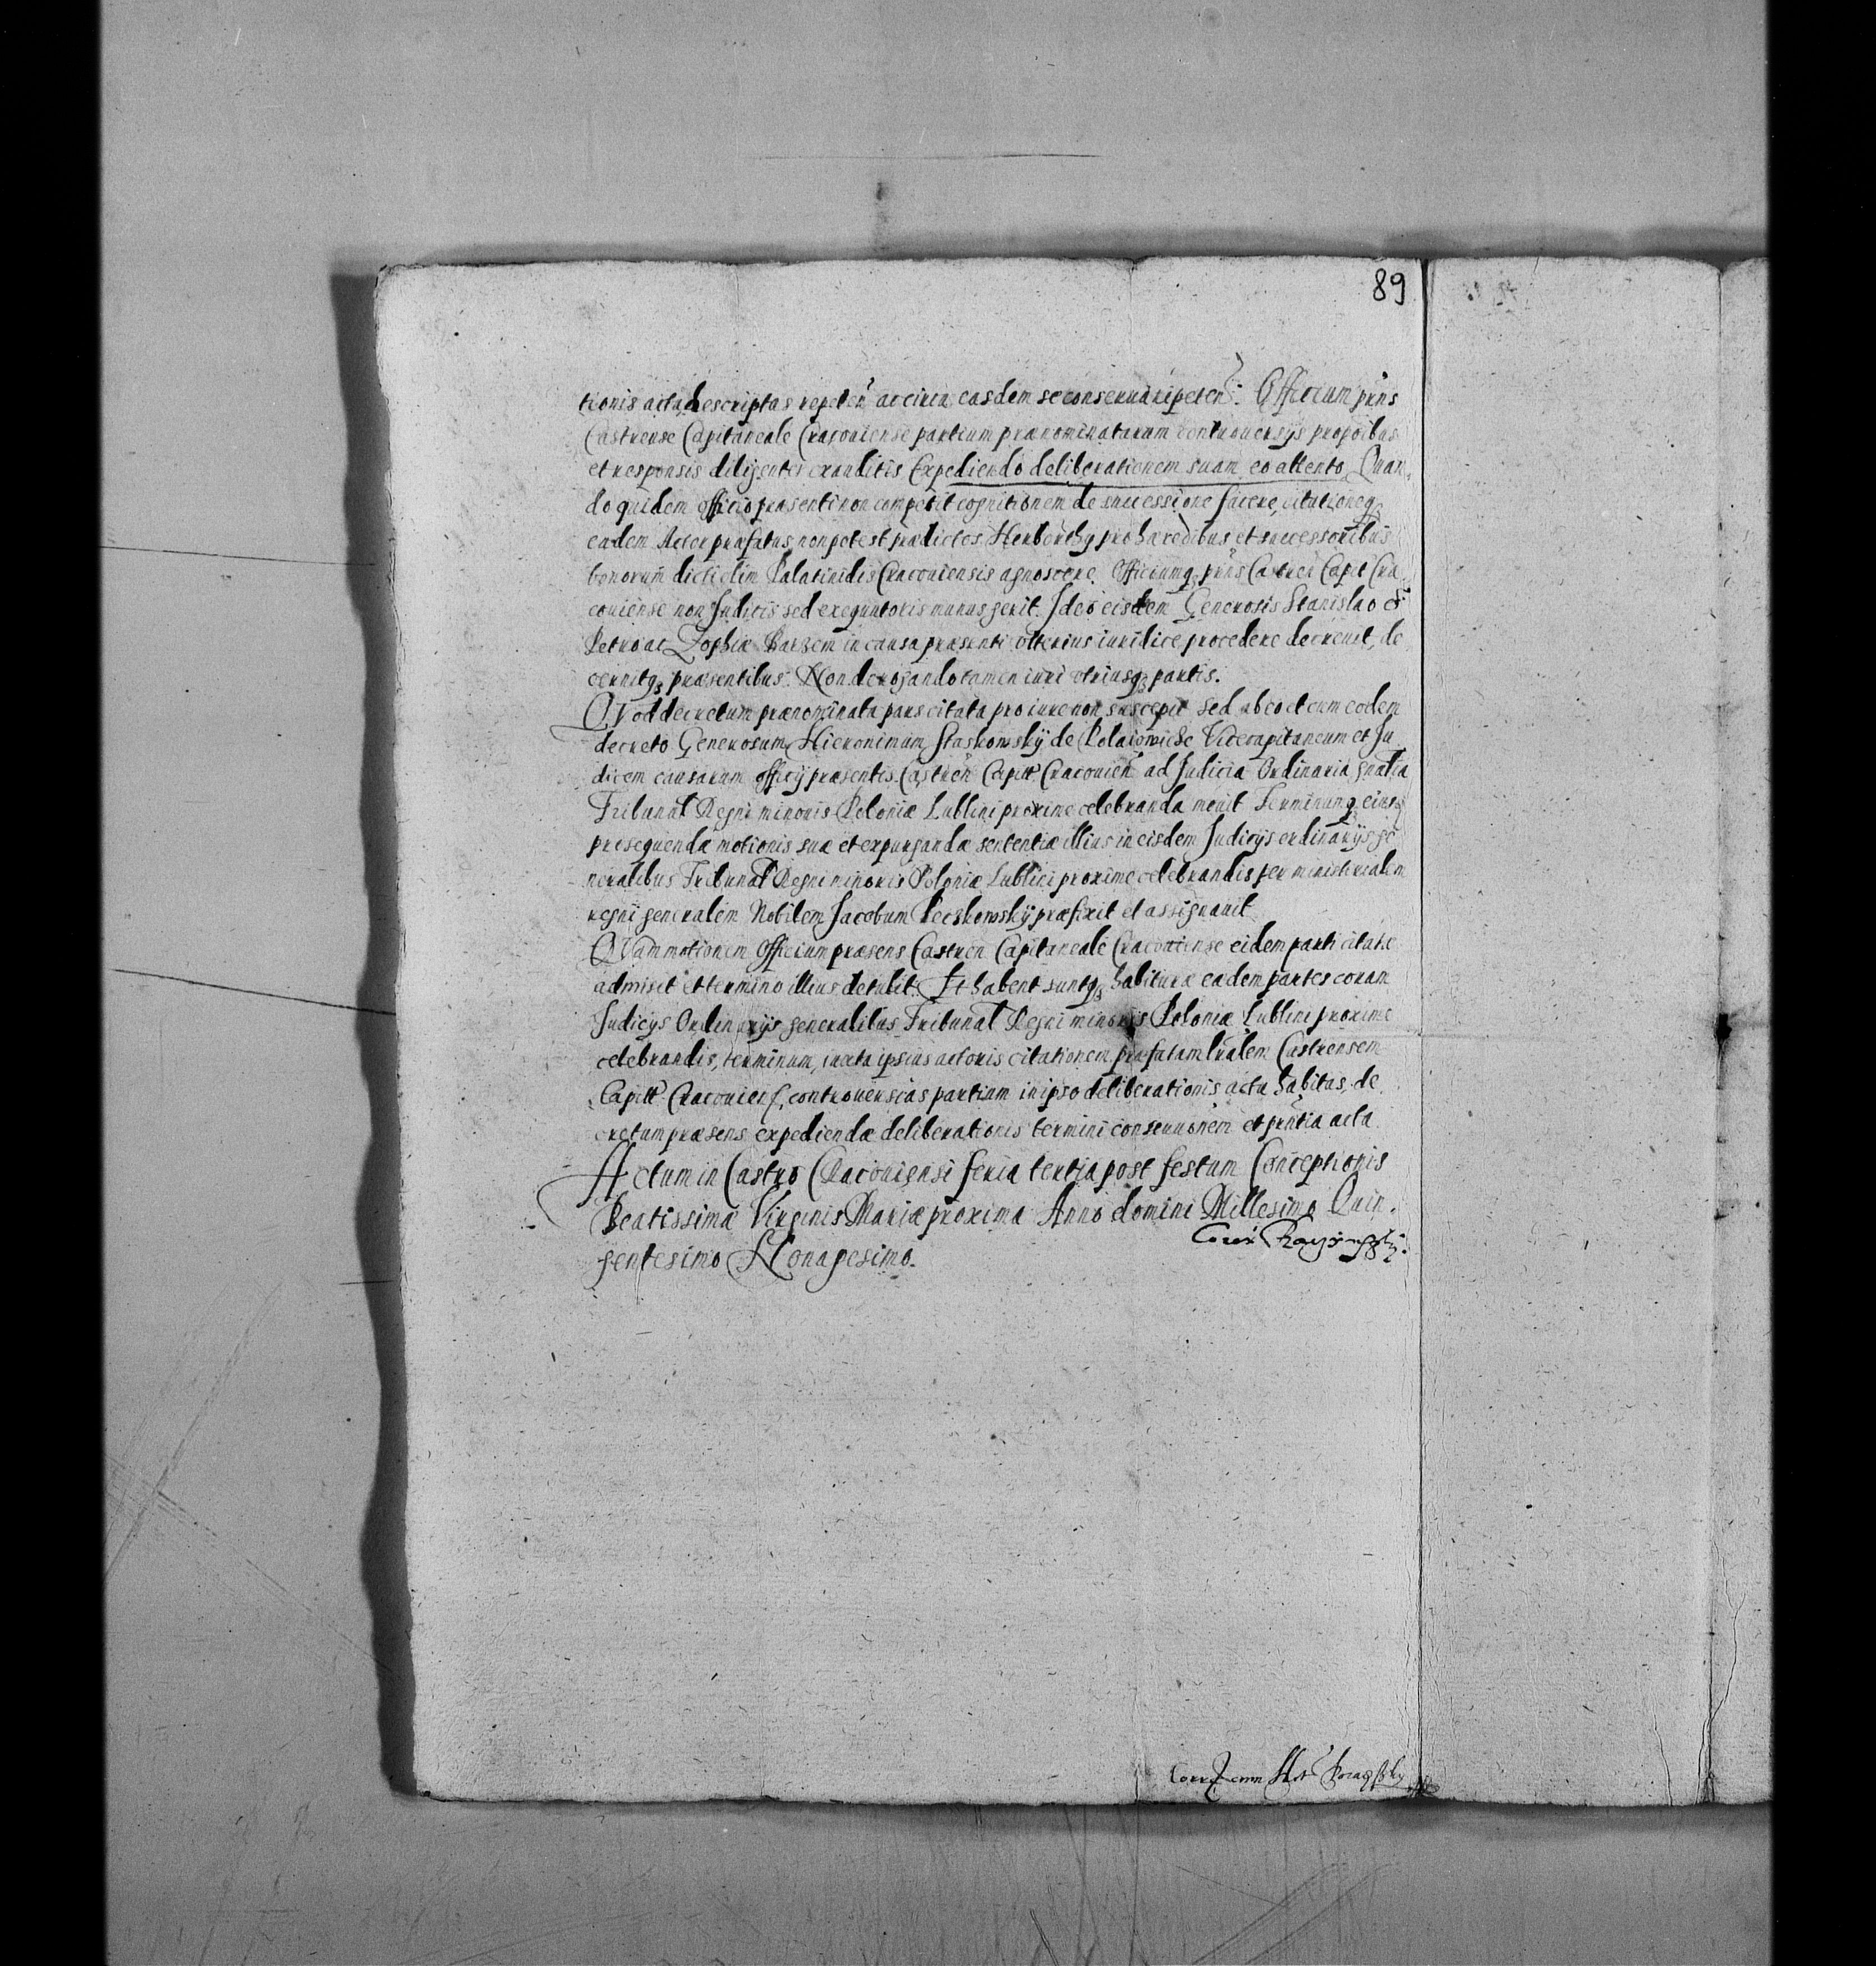 89
tionis acta descriptas repeten ac circa easdem se conseruari peten. Officium pñs
Castrense Capitaneale Cracouiense partium prænominatarum controuersijs propõibus
et responsis diligenter exauditis Expediendo deliberationem suam eo attento Quan
do quidem officio præsenti non competit cognitionem de successione facere, citationeq3
eadem Actor præfatus non potest prædictos Herborthy pro hæredibus et successoribus
bonorum dicti olim Palatinidis Cracouiensis agnoscere. Officiumq3 pñs Castren Capit Cra
couiense non Judicis sed exequutoris munus gerit. Ideo eisdem Generosis Stanislao et
Petro ac Zophiæ Barzem in causa præsenti vlterius iuridice procedere decreuit, de
cernitq3 præsentibus. Non derogando tamen iuri vtriusq3 partis.
QVod decretum prænominata pars citata pro iure non suscepit sed ab eo et eum eodem
decreto Generosum Hieronimum Staskowskÿ de Vicecapitaneum et Ju
dicem causarum officij præsentis Castren Capitt Cracouien ad Judicia Ordinaria gnalia
Tribunal Regni minoris Poloniæ Lublini proxime celebranda mouit Terminumq3 eius
prosequendæ motionis suæ et expurgandæ sententiæ illius in eisdem Judicijs ordinarijs ge
neralibus Tribunal Regni minoris Poloniæ Lublini proxime celebrandis per ministerialem
regni generalem Nobilem Jacobum præfixit et assignauit
QVam motionem Officium præsens Castren Capitaneale Cracouiense eidem parti citatæ
admisit et termino illius detulit. Et habent suntq3 habituræ eædem partes coram
Judicijs Ordinarijs generalibus Tribunal Regni minoris Poloniæ Lublini proxime
celebrandis, terminum, iuxta ipsius actoris citationem præfatam lralem Castrensem
Capitt Cracouien, controuersias partium in ipso deliberationis actu habitas, de
cretum præsens expediendæ deliberationis termini conseruõnem et pñtia acta
Actum in Castro Cracouiensi feria tertia post festum Conceptionis
Beatissimæ Virginis Mariæ proxima Anno domini Millesimo Quin.
gentesimo Nonagesimo.